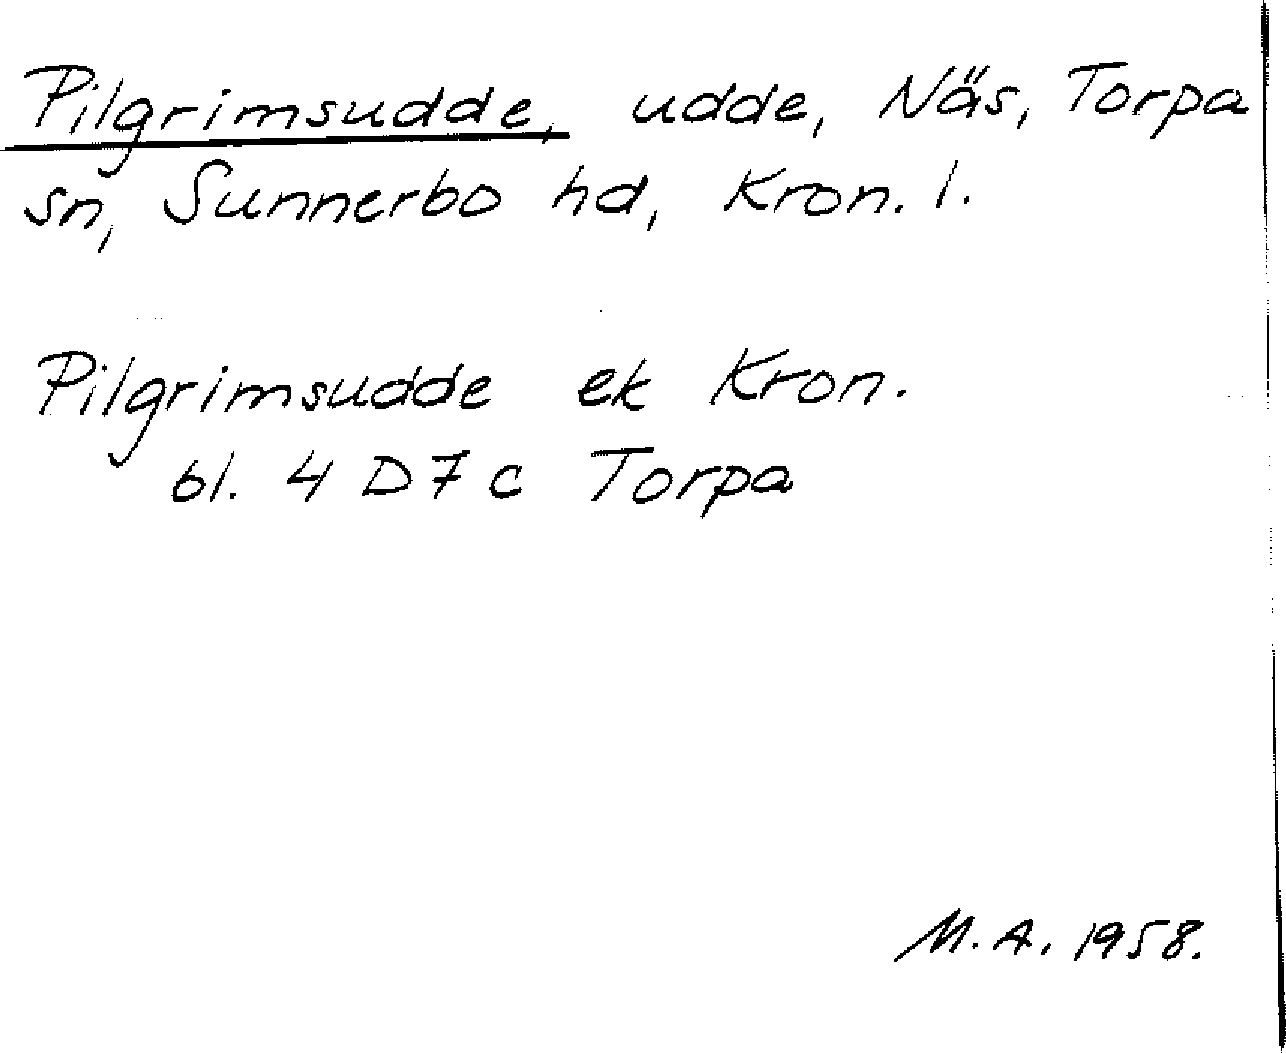 Pilgrimsudde, udde, Näs, Torpa
sn, Sunnerbo hd, Kron. l.
Pilgrimsudde ek Kron.
bl. 4 D 7 c Torpa
M. A. 1958.